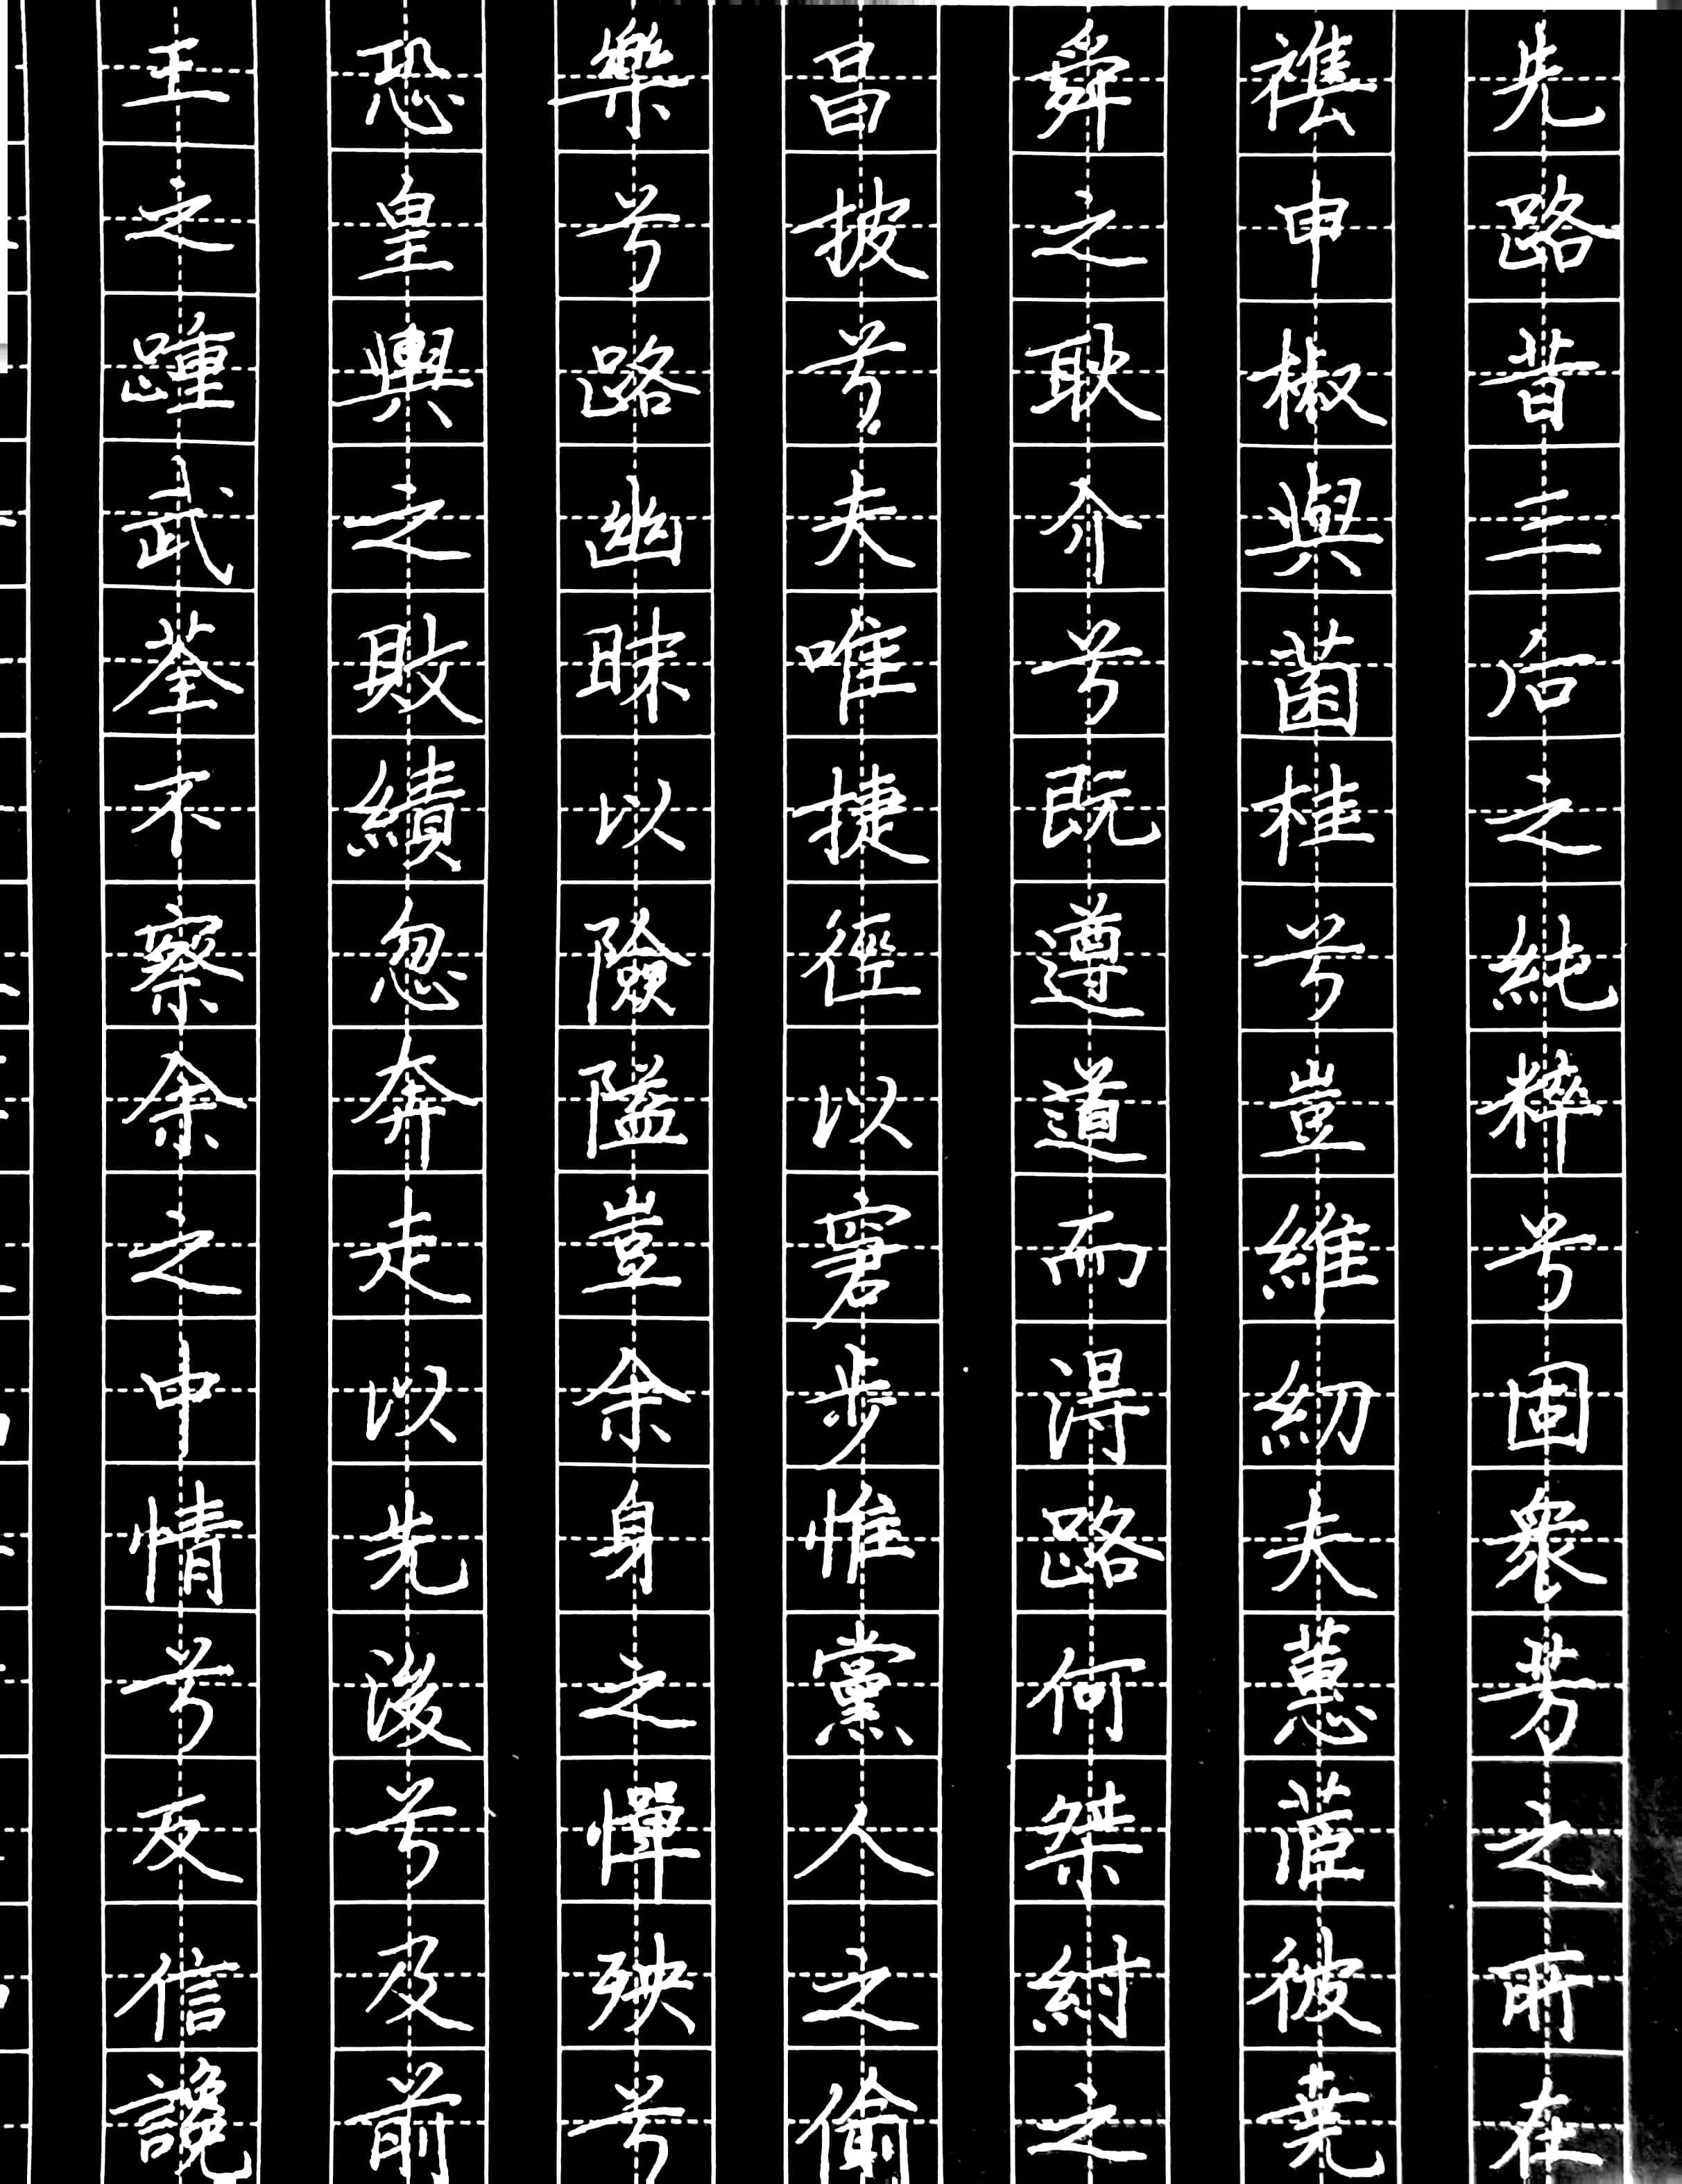 先路昔三后之純粹兮固衆芳之所在
襍申椒與菌桂兮豈維紉夫蕙茝彼堯
舜之耿介兮既遵道而得路何桀紂之
昌披兮夫唯捷徑以窘步惟黨人之偷
樂兮路幽昧以險隘豈余身之憚殃兮
恐皇輿之敗績忽奔走以先後兮及前
王之踵武荃不察余之中情兮反信讒